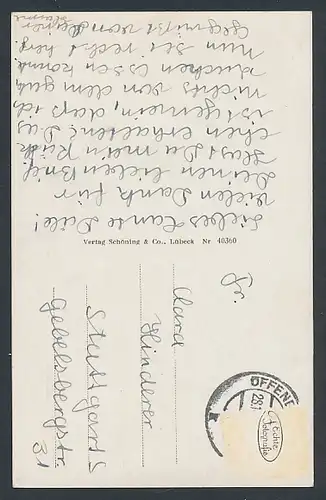 Liebes Tante Dile!
Vielen Dank für
Deinen lieben Brief
Hast Du mein Küch-
chen erhalten. Das
ist gemein, das ich
nichts von dem guh
kuchen essen konnte
nun sei recht herz.
gegrüßt von Deiner
Verlag Schöning & Co., Lübeck Nr 40360
Fr.
Clara
Hinderer
Stuttgart S
Gebelsbergstr.
31
OFFENB
Echte
Fotografie